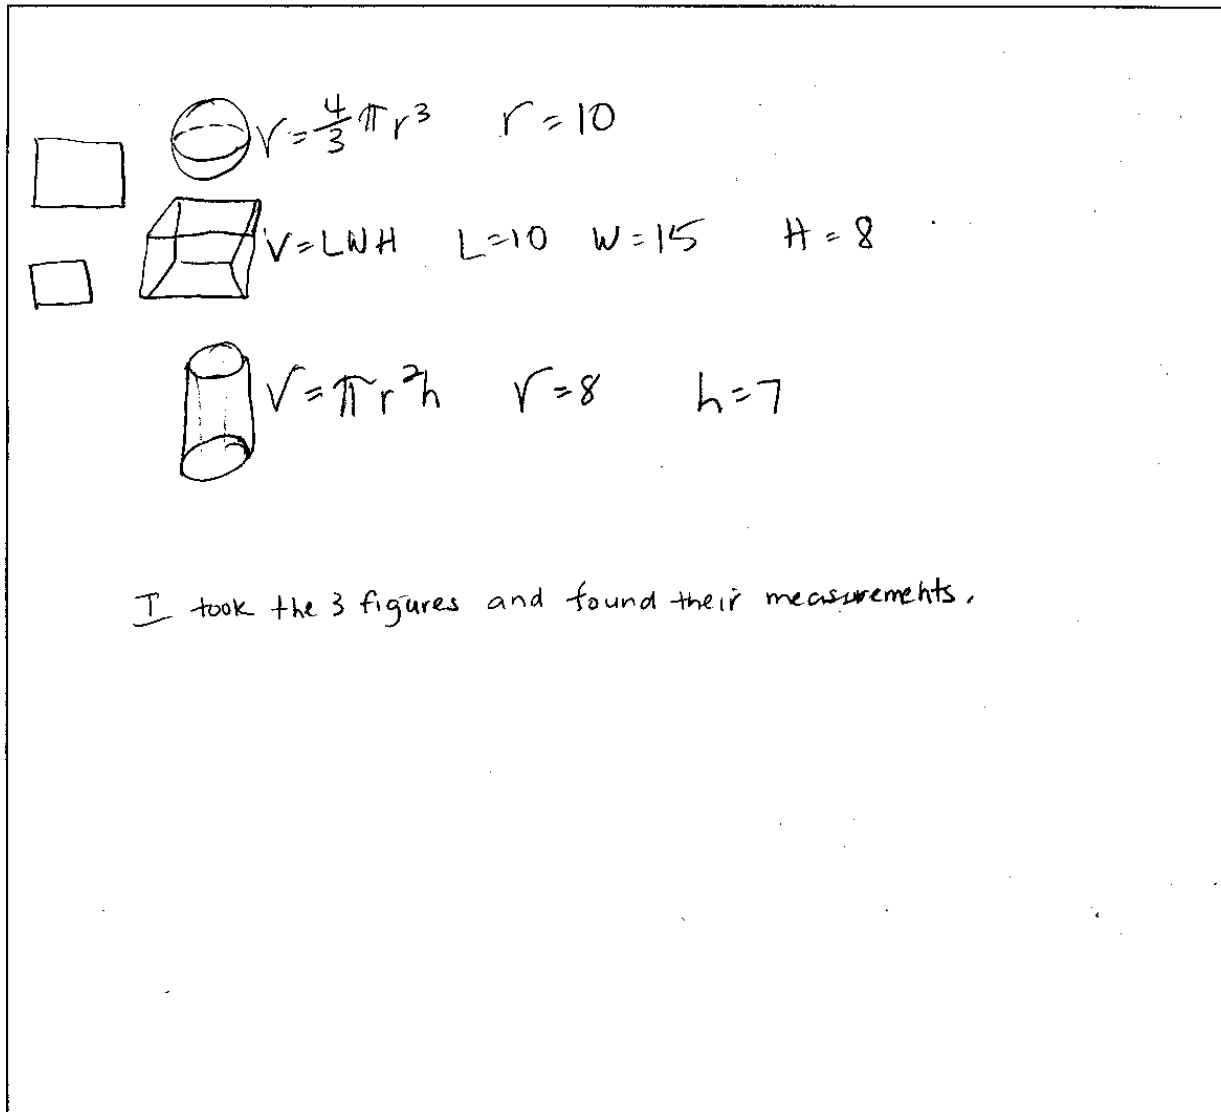 V = 4/3 πr³ r = 10
V = LWH L = 10 W = 15 H = 8
V = πr²h r = 8 h = 7
I took the 3 figures and found their measurements.